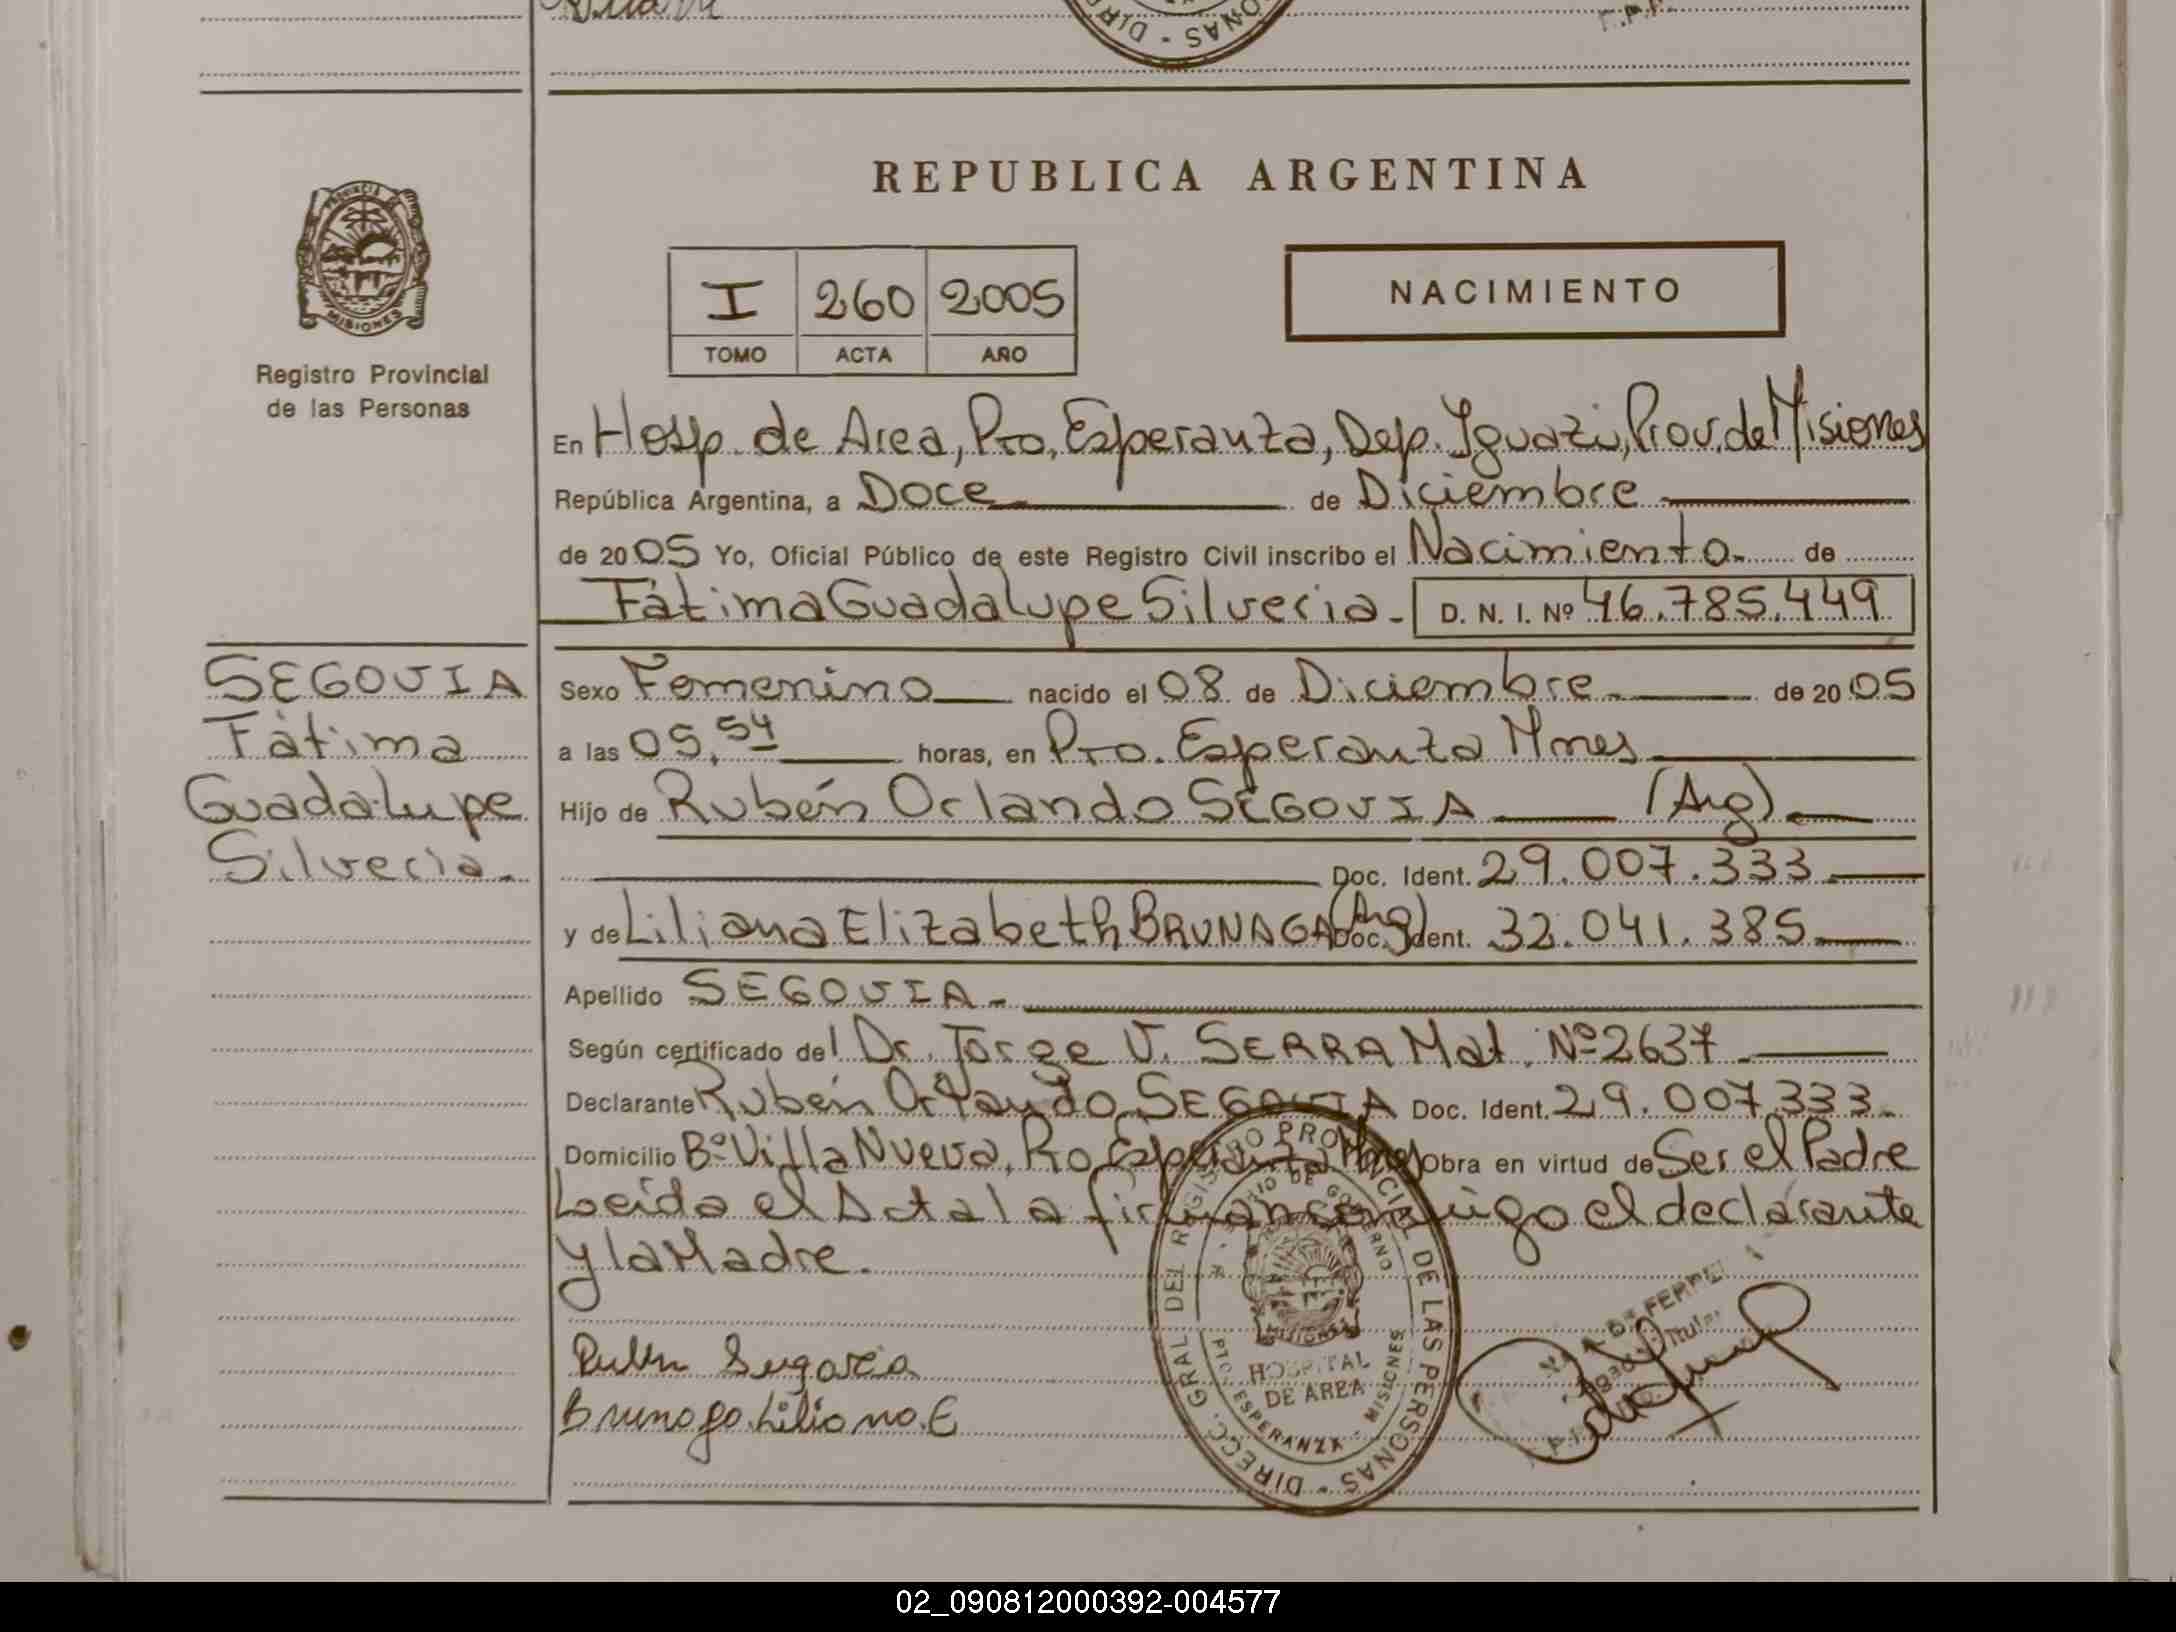 DIRE · SONAS
REPUBLICA ARGENTINA
PROVINCIA DE
MISIONES
Registro Provincial
de las Personas
I 260 2005
TOMO ACTA AÑO
NACIMIENTO
En Hosp. de Area, Pto. Esperanza, Dep. Iguazú, Prov. de Misiones
República Argentina, a Doce de Diciembre
de 2005 Yo, Oficial Público de este Registro Civil inscribo el Nacimiento de
Fátima Guadalupe Silveria. D. N. I. Nº 46.785.449
SEGOVIA
Fátima
Guadalupe
Silveria.
Sexo Femenino nacido el 08 de Diciembre de 2005
a las 05,54 horas, en Pto. Esperanza Mnes
Hijo de Rubén Orlando SEGOVIA (Arg)
Doc. Ident. 29.007.333
y de Liliana Elizabeth BRUNAGA (Arg) Doc. Ident. 32.041.385
Apellido SEGOVIA
Según certificado del Dr. Jorge V. SERRA Mat. Nº 2637
Declarante Rubén Orlando SEGOVIA Doc. Ident. 29.007.333
Domicilio Bº Villa Nueva, Pto Esperanza Mnes Obra en virtud de Ser el Padre
Leída el Acta la firman conmigo el declarante
y la Madre.
Ruben Segovia
Brunaga Liliana E
DIRECC. GRAL DEL REGISTRO PROVINCIAL DE LAS PERSONAS
DE GOBIERNO
MISIONES
HOSPITAL
DE AREA
PTO ESPERANZA - MISIONES
02_090812000392-004577